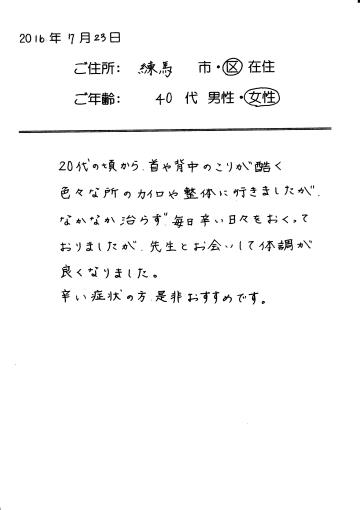 2016年7月23日
ご住所: 練馬 市・区 在住
ご年齢: 40 代 男性・女性
20代の頃から、首や背中のこりが酷く
色々な所のカイロや整体に行きましたが、
なかなか治らず、毎日辛い日々をおくって
おりましたが、先生とお会いして体調が
良くなりました。
辛い症状の方、是非おすすめです。